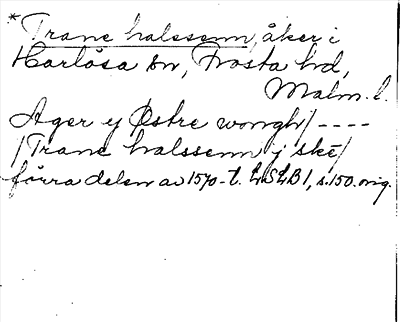 *Trane halssenn, åker i
Harlösa sn, Frosta hd,
Malm. l.
Ager ej Østre wongh/----
/Trane halssenn j skē/
förra delen av 1570-t. LSLB 1, s. 150. orig.